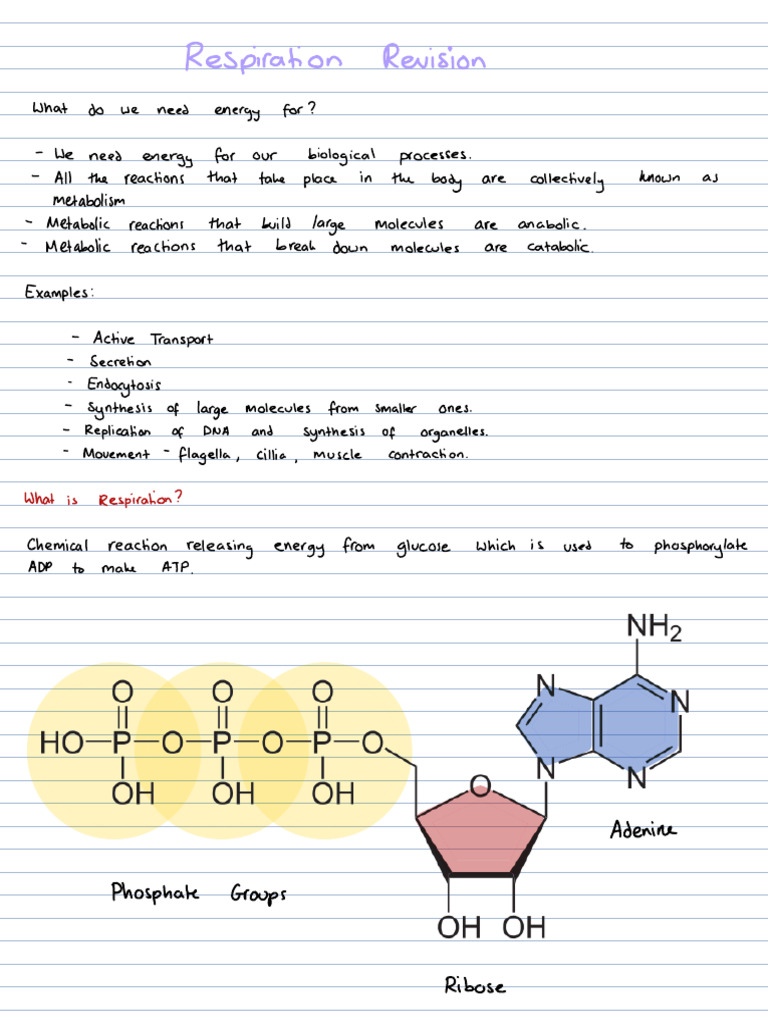 Respiration Revision
What do we need energy for?
- We need energy for our biological processes.
- All the reactions that take place in the body are collectively known as
metabolism
- Metabolic reactions that build large molecules are anabolic.
- Metabolic reactions that break down molecules are catabolic.
Examples:
- Active Transport
- Secretion
- Endocytosis
- Synthesis of large molecules from smaller ones.
- Replication of DNA and synthesis of organelles.
- Movement - flagella, cillia, muscle contraction.
What is Respiration?
Chemical reaction releasing energy from glucose which is used to phosphorylate
ADP to make ATP.
NH2
O O O N N
HO P O P O P O
OH OH OH O N N
Adenine
Phosphate Groups
OH OH
Ribose